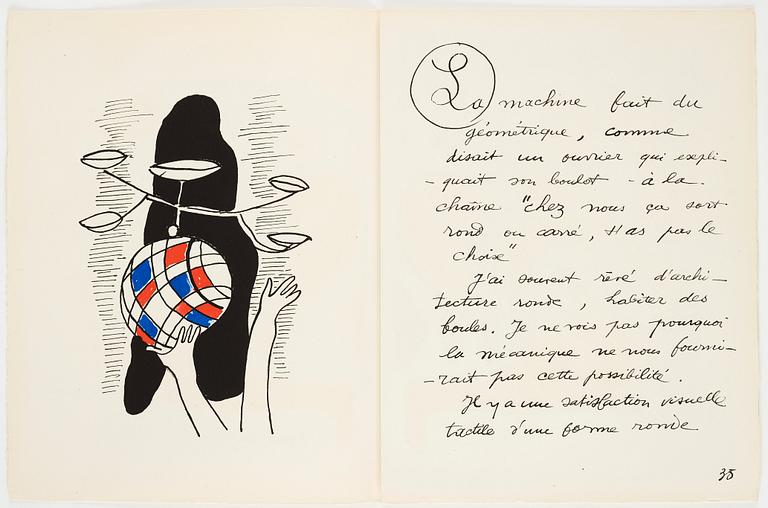 La machine fait du
géométrique, comme
disait un ouvrier qui expli-
-quait son boulot - à la
chaîne "chez nous ça sort
rond ou carré, t'as pas le
choix"
J'ai souvent rêvé d'archi-
tecture ronde, habiter des
boules. Je ne vois pas pourquoi
la mécanique ne nous fourni-
-rait pas cette possibilité.
Il y a une satisfaction visuelle
tactile d'une forme ronde
35